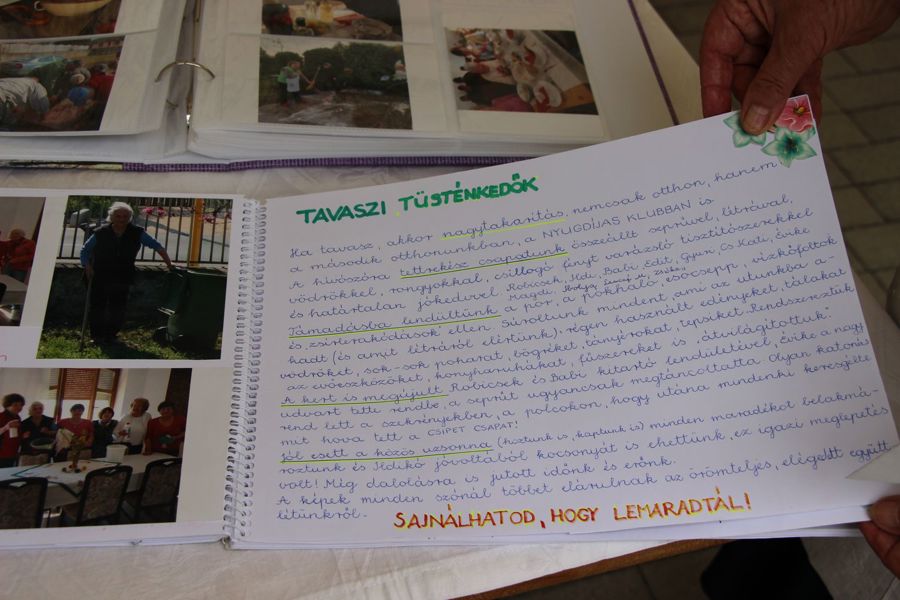 TAVASZI TÜSTÉNKEDŐK
Ha tavasz, akkor nagytakarítás, nemcsak otthon, hanem
a második otthonunkban, a NYUGDÍJAS KLUBBAN is
A hívószóra tettrekész csapatunk összeállt seprűvel, létrával,
vödrökkel, rongyokkal, csillogó fényt varázsló tisztítószerekkel
és határtalan jókedvvel. Robicsek, Ildi, Babi, Edit, Gyuri, Cs. Kati, Évike
Magdi
Támadásba lendültünk a por, a pókháló, esőcsepp, vízkőfoltok
és "zsírlerakódások" ellen. Súroltunk mindent, ami az utunkba a-
kadt (és amit létráról elértünk). régen használt edényeket, tálakat
vödröket, sok-sok poharat, bögrét, tányérokat, tepsiket. Rendszereztük
az evőeszközöket, konyharuhákat, fűszereket is "átvilágítottuk"
A kert is megújult. Robicsek és Babi kitartó lendületével, Évike a nagy
udvart tette rendbe, a seprűt ugyancsak megtáncoltatta. Olyan katonás
rend lett a szekrényekben, a polcokon, hogy utána mindenki keresgélte
mit hova tett a CSIPET CSAPAT!
Jól esett a közös uzsonna (hoztunk is, kaptunk is) minden maradékot belakmá-
roztunk és Ildikó jóvoltából kocsonyát is ehettünk, ez igazi meglepetés
volt! Még dalolásra is jutott időnk és erőnk.
A képek minden szónál többet elárulnak az örömteljes, elégedett együtt
létünkről.
SAJNÁLHATOD, HOGY LEMARADTÁL!